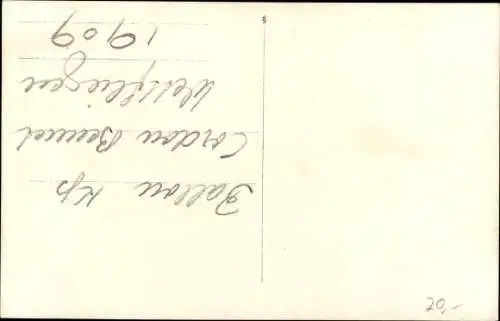 Ballon Kp
Gordon Bennet
Wettfliegen
1909
20,-